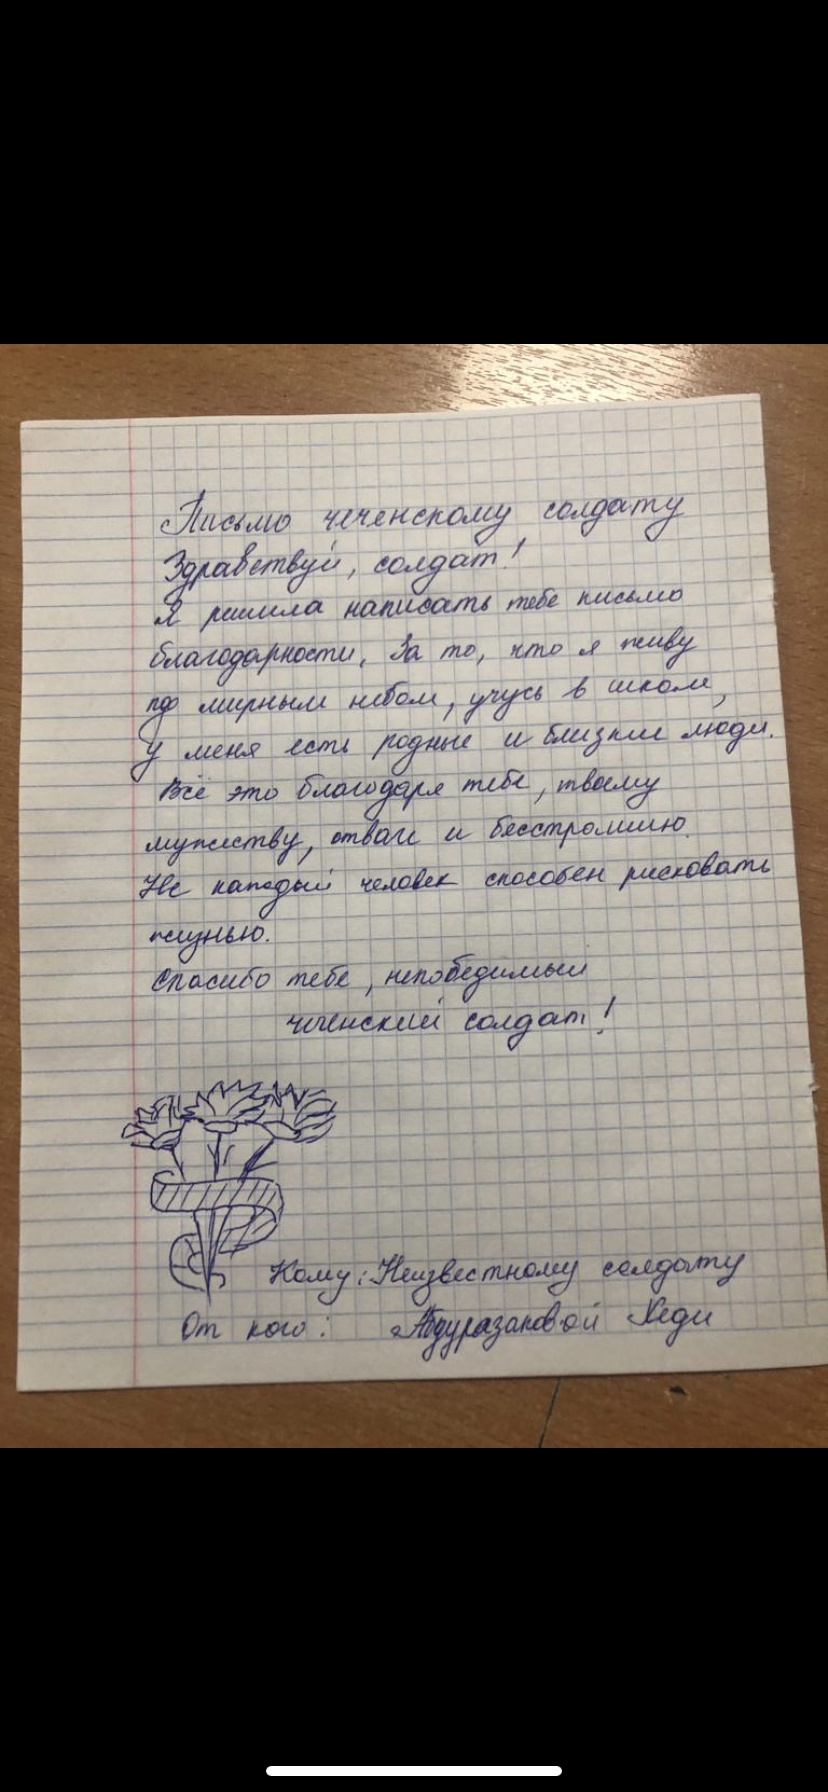 Письмо чеченскому солдату
Здравствуй, солдат!
Я решила написать тебе письмо
благодарности, За то, что я живу
под мирным небом, учусь в школе,
у меня есть родные и близкие люди.
Всё это благодаря тебе, твоему
мужеству, отваге и бесстрашию.
Не каждый человек способен рисковать
жизнью.
Спасибо тебе, непобедимый
чеченский солдат!
Кому: Неизвестному солдату
От кого: Абдуразаковой Хеди